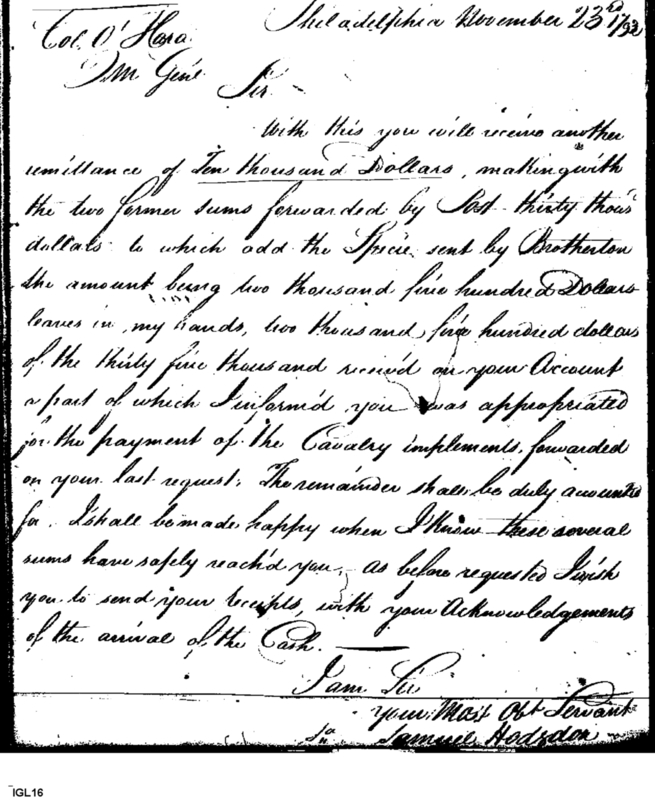 Philadelphia November 23rd 1792
Col. O'Hara
QM Genl
Sir
With this you will receive another
remittance of Ten thousand Dollars, making with
the two former sums forwarded by Post thirty thous'
dollars to which add the Specie sent by Brotherton
the amount being two thousand five hundred Dollars
leaves in my hands, two thousand five hundred dollars
of the thirty five thousand receiv'd on your Account
a part of which I inform'd you was appropriated
for the payment of the Cavalry implements, forwarded
on your last request. The remainder shall be duly accounted
for. I shall be made happy when I know these several
sums have safely reach'd you. As before requested I wish
you to send your receipts, with your Acknowledgements
of the arrival of the Cash.
I am Sir
your Most Obt Servant
Samuel Hodgdon
IGL16